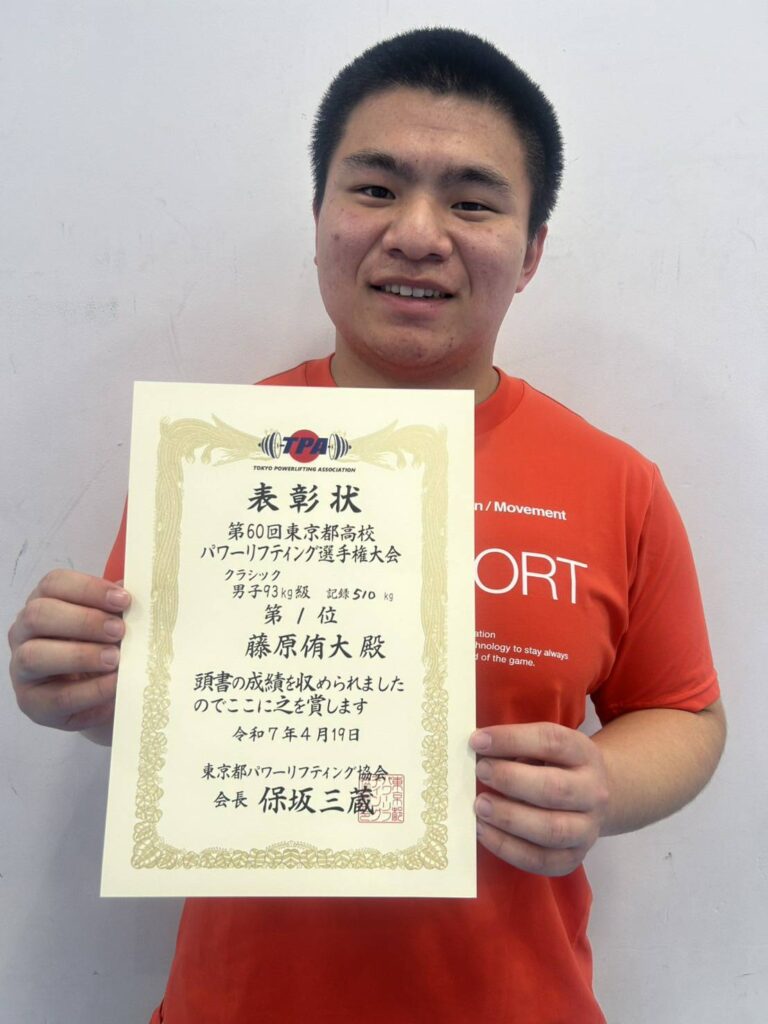 TPA
TOKYO POWERLIFTING ASSOCIATION
表彰状
第60回東京都高校
パワーリフティング選手権大会
クラシック
男子93kg級 記録510kg
第1位
藤原侑大殿
頭書の成績を収められました
のでここに之を賞します
令和7年4月19日
東京都パワーリフティング協会
会長 保坂三蔵
n / Movement
ORT
ation
hnology to stay always
d of the game.